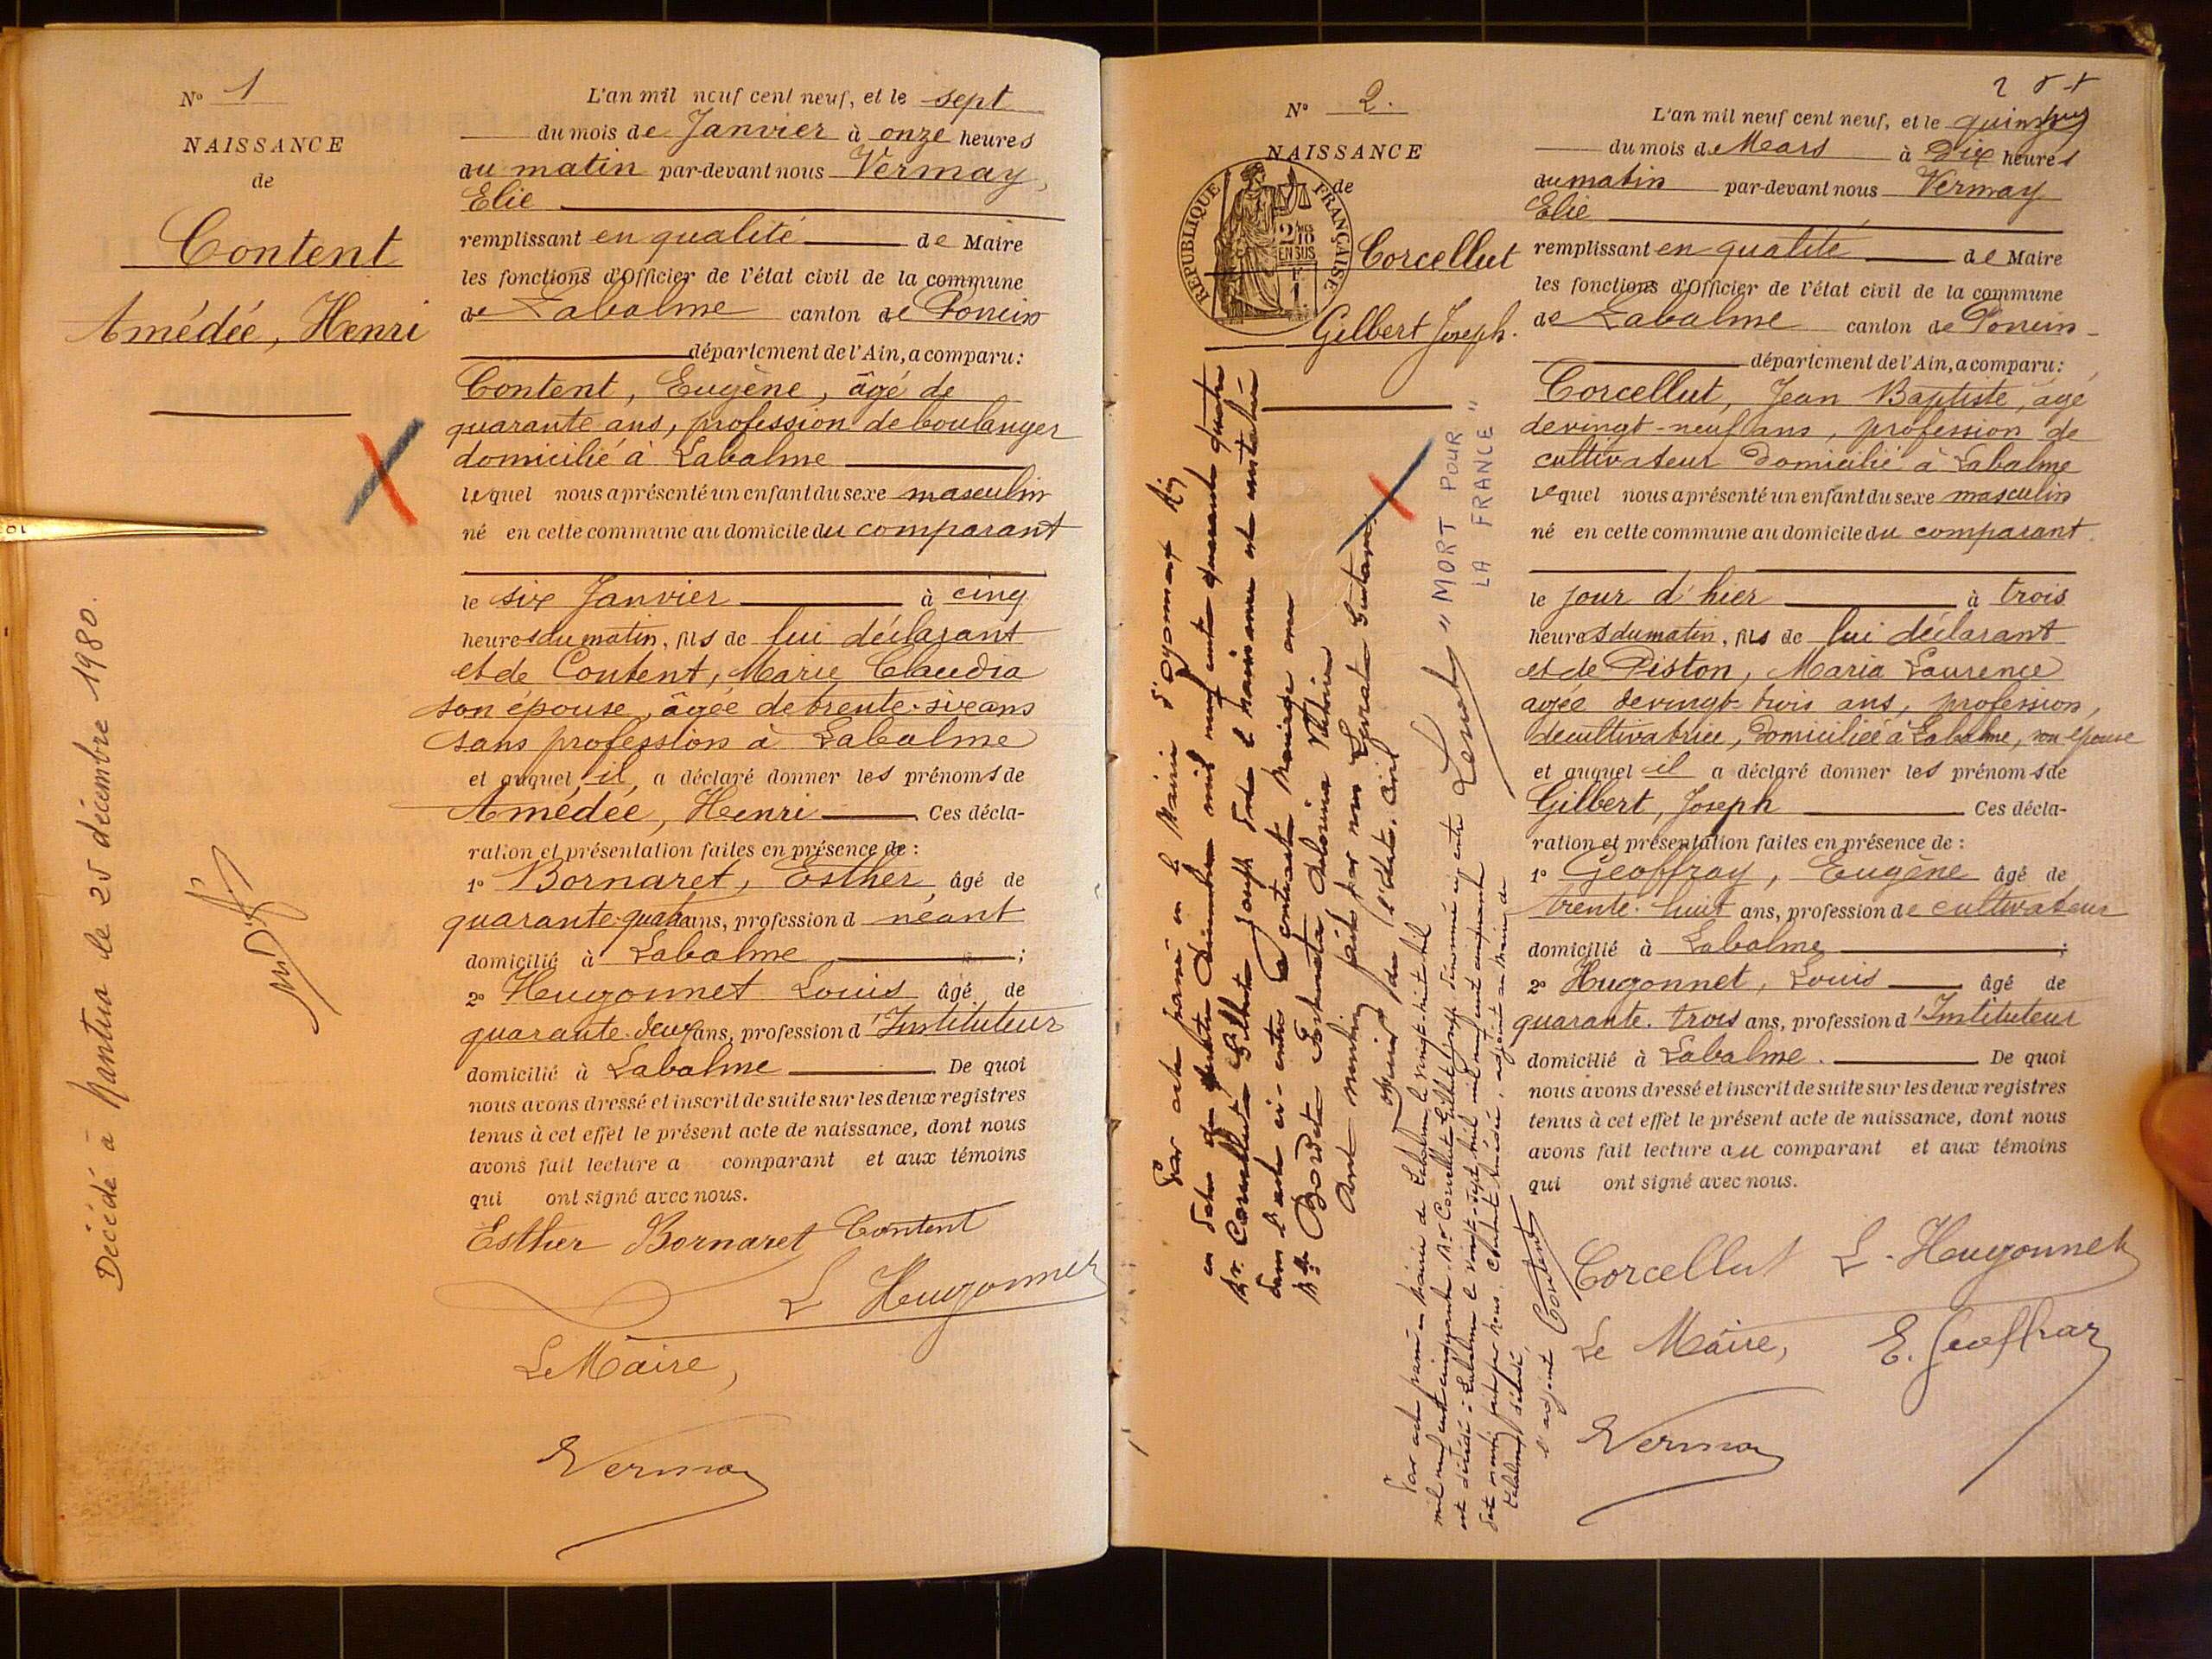 N° 1
NAISSANCE
de
Content
Amédée, Henri
Décédé à Nantua le 25 décembre 1980.
L'an mil neuf cent neuf, et le sept
du mois de Janvier à onze heures
du matin par-devant nous Vermay,
Elie
remplissant en qualité de Maire
les fonctions d'Officier de l'état civil de la commune
de Labalme canton de Poncin
département de l'Ain, a comparu :
Content, Eugène, âgé de
quarante ans, profession de boulanger
domicilié à Labalme
lequel nous a présenté un enfant du sexe masculin
né en cette commune au domicile du comparant
le six Janvier à cinq
heures du matin, fils de lui déclarant
et de Content, Marie Claudia
son épouse, âgée de trente-six ans
sans profession à Labalme
et auquel il a déclaré donner les prénoms de
Amédée, Henri Ces décla-
ration et présentation faites en présence de :
1° Bornaret, Esther âgé de
quarante-quatre ans, profession d néant
domicilié à Labalme ;
2° Hugonnet Louis âgé de
quarante-deux ans, profession d'Instituteur
domicilié à Labalme De quoi
nous avons dressé et inscrit de suite sur les deux registres
tenus à cet effet le présent acte de naissance, dont nous
avons fait lecture a comparant et aux témoins
qui ont signé avec nous.
Esther Bornaret Content
L Hugonnet
Le Maire,
Vermay
N° 2.
NAISSANCE
de
RÉPUBLIQUE FRANÇAISE
2/10
EN SUS
1
Corcellut
Gilbert Joseph.
Par acte passé en la Mairie d'Oyonnax, Ain,
en date du quatre Décembre mil neuf cent quarante quatre
Mr. Corcellut Gilbert Joseph dont la naissance est constatée
dans l'acte ci-contre a contracté Mariage avec
Mlle Bordet
Dont mention faite par nous
l'état-civil
" MORT POUR
LA FRANCE "
Par acte passé en Mairie de Labalme le vingt-huit
mil neuf cent cinquante Mr Corcellut Gilbert Joseph dénommé ci-contre
est décédé à Labalme le vingt-sept
dont mention faite par nous, Content Amédée, adjoint au Maire de
Labalme, délégué.
l'adjoint Content
L'an mil neuf cent neuf, et le quinze
du mois de Mars à Dix heures
du matin par-devant nous Vermay
Elie
remplissant en qualité de Maire
les fonctions d'Officier de l'état civil de la commune
de Labalme canton de Poncin
département de l'Ain, a comparu :
Corcellut, Jean Baptiste, âgé
de vingt-neuf ans, profession de
cultivateur domicilié à Labalme
lequel nous a présenté un enfant du sexe masculin
né en cette commune au domicile du comparant.
le jour d'hier à trois
heures du matin, fils de lui déclarant
et de Piston, Maria Laurence
agée de vingt-trois ans, profession,
de cultivatrice, domiciliée à Labalme, son épouse
et auquel il a déclaré donner les prénoms de
Gilbert, Joseph Ces décla-
ration et présentation faites en présence de :
1° Geoffray, Eugène âgé de
trente-huit ans, profession de cultivateur
domicilié à Labalme ;
2° Hugonnet, Louis âgé de
quarante-trois ans, profession d'Instituteur
domicilié à Labalme. De quoi
nous avons dressé et inscrit de suite sur les deux registres
tenus à cet effet le présent acte de naissance, dont nous
avons fait lecture au comparant et aux témoins
qui ont signé avec nous.
Corcellut L. Hugonnet
Le Maire, E. Geoffray
Vermay